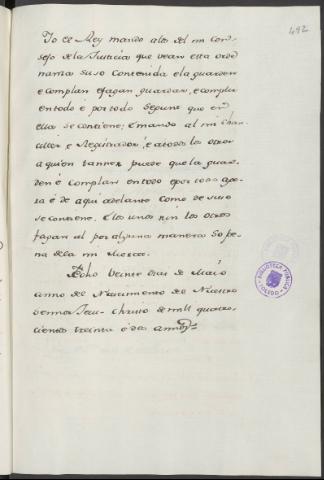 492
Yo el Rey mando alos del mi Con-
sejo dela Justicia que vean esta orde
nanza suso contenida e la guarden
e complan efagan guardar, e complir
entodo è por todo segunt que en
ella se contiene; è mando al mi Chan
ciller è Registrador, è atodos los otros
aquien tanner puede que la guar-
den è complan entodo epor todo ago-
ra è de aqui adelante como de suso
se contiene. E los unos nin los otros
fagan al por alguna manera so pe-
na dela mi Merced.
Fecho veinte dias de Maio
anno del Nascimiento de Nuestro
Sennor Jesu-Christo de mill quatro-
cientos treinta è dos annos
BIBLIOTECA PUBLICA
TOLEDO